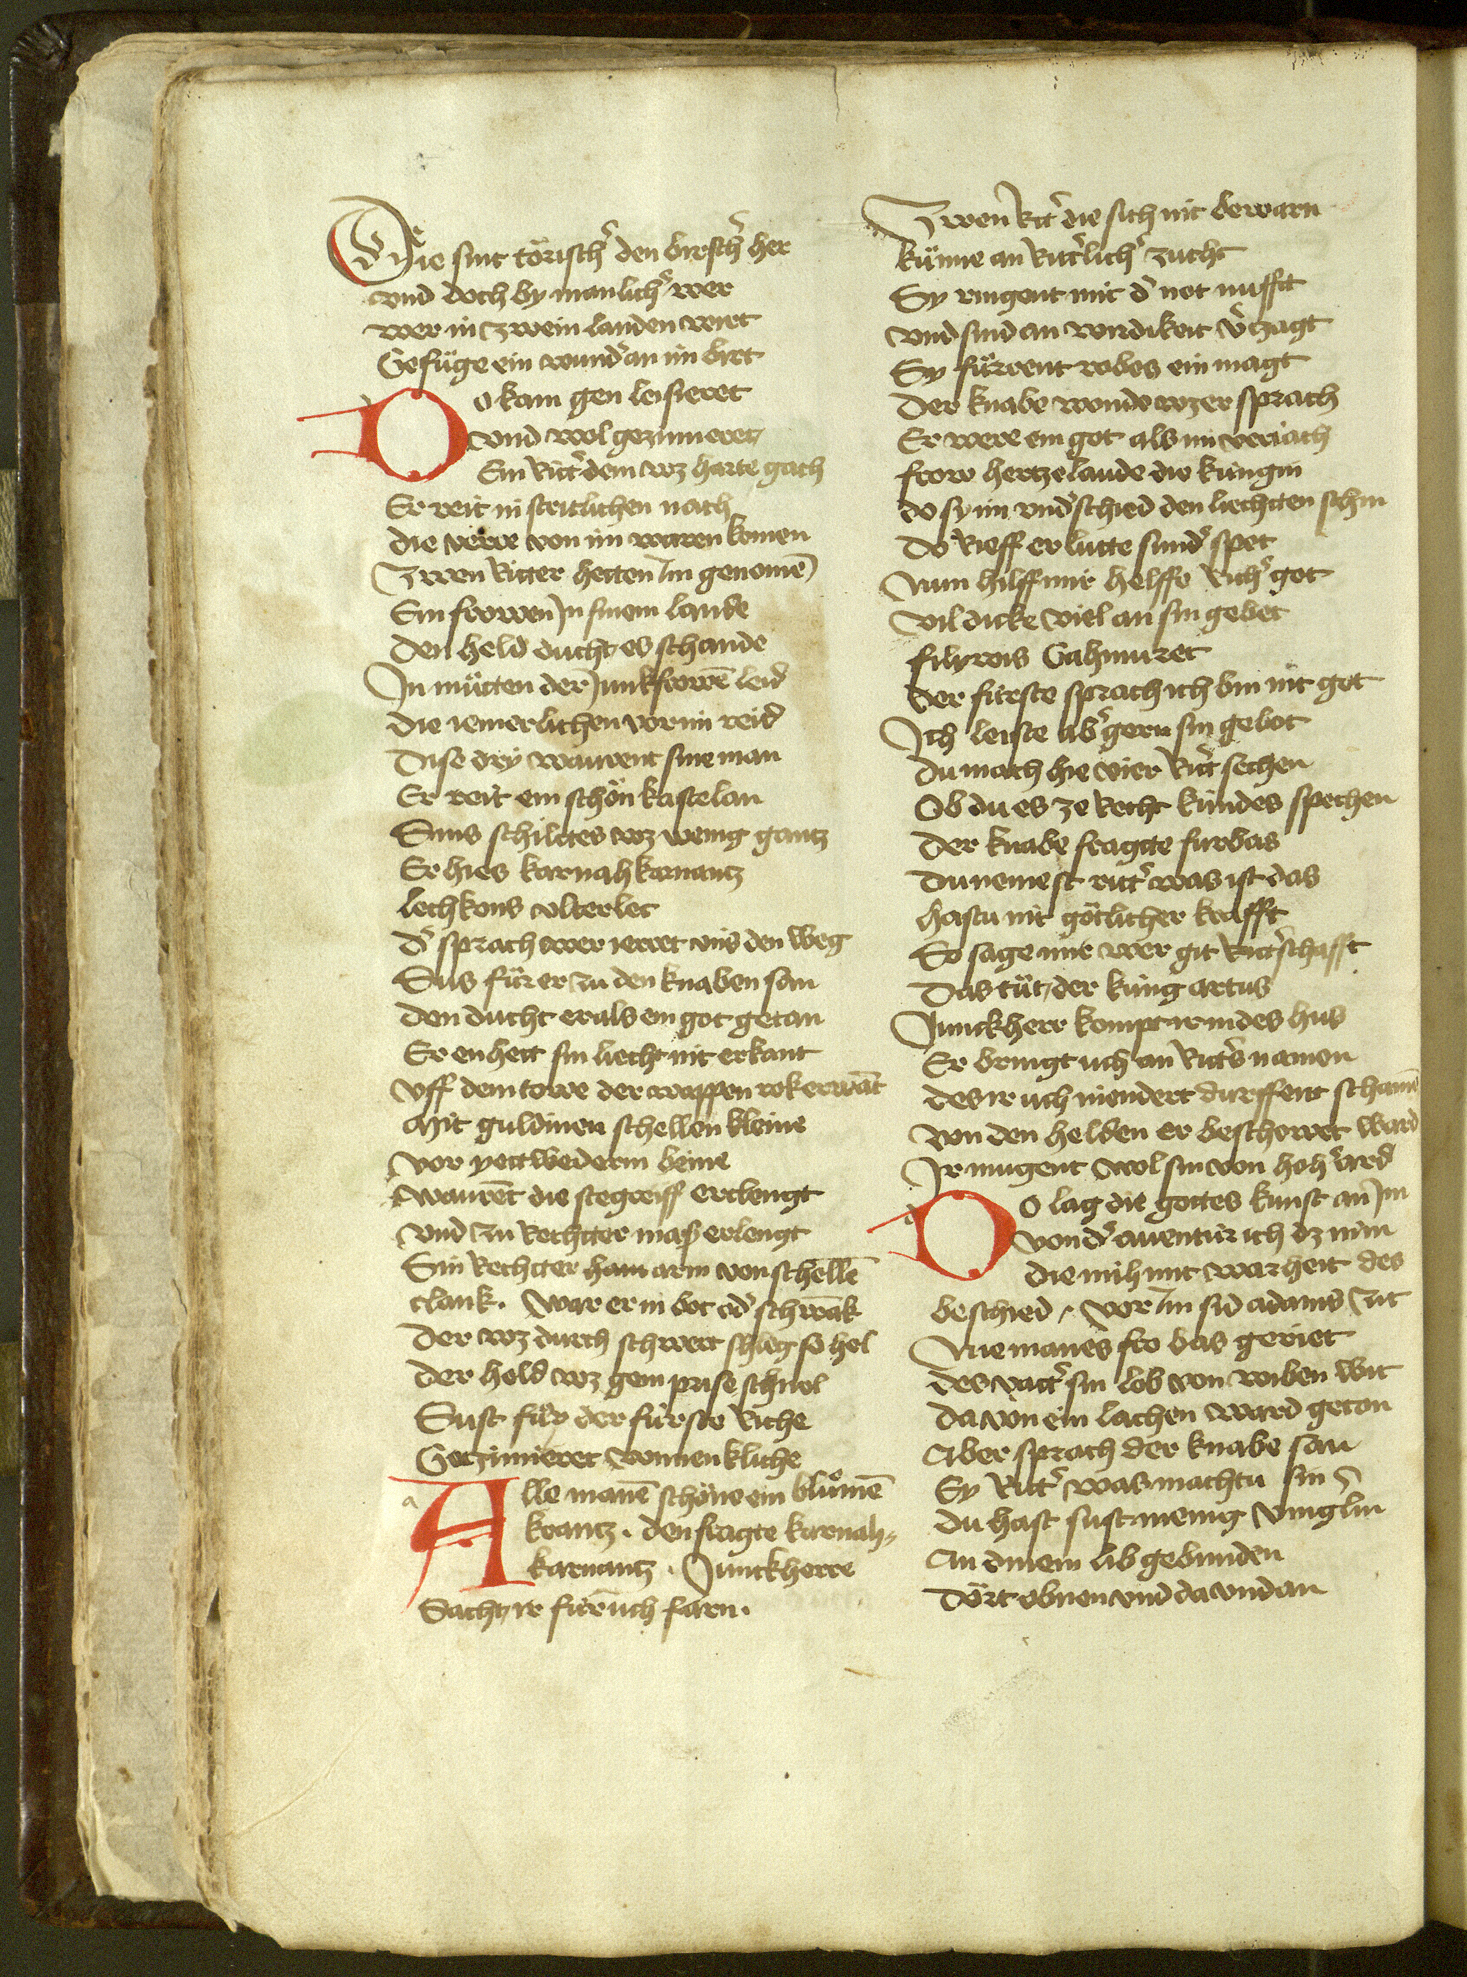 Die sint törisch' den birsch' her
vnd doch by manlich' wer
wer in zwein landen wirt
Gefüge ein wund' an im birt
Do kam gen leisieret
vnd wol gezimieret
Ein Ritt' dem wz harte gach
Er reit in stritlichen nach
die verre von im waren komen
Zwen Ritter hetten Im genomē
Ein frowen In sinem lande
Den held ducht es schande
In mütten der Junkfrowē leid
die iemerlichen vor im reid
Dise dry warent sine man
Er reit ein schön kastelan
Sins schiltes wz wenig gantz
Er hies karnahkarnantz
lechkons vlterlec
d' sprach wer ierret vns den weg
Sus für er zu den knaben san
den ducht er als ein got getan
Er en hett sin liecht nit erkant
vff dem towe der wappen rok erwāt
Mit guldinen schellen kleine
vor yettwederm beine
warēt die stegreiff erclengt
vnd zu Rechtter maß erlengt
Sin Rechtter ham arm von schellē
clank. war er in bot od' schwāk
Der wz durch schwert schleg so hel
der held wz gem prise schnel
Sust für der fürste Riche
Getzimieret wunnenkliche
Alle manē schöne ein blůmē
krantz. den fragte karnah=
karnantz. Junckherre
Sacht ir für üch farn.
Zwen Rit' die sich nit bewarn
künne an Ritt'lich' zucht
Sy ringent mit d' not nufft
vnd sind an wirdikeit v'tzagt
Sy fürrent robes ein magt
Der knabe wonde wz er sprach
Er were ein got als im veriach
frow hertzelaude die küngin
do sy im vnd'schied den liechtten schin
Do Rieff er lutte sund' spet
Nun hilff mir helffe Rich' got
vil dicke viel an sin gebet
fily rois Gahmuret
Der fürste sprach ich bin nit got
Ich leiste ab' gern sin gebot
du mach hie vier Ritt' sechen
Ob du es ze Recht kündes spechen
Der knabe fragtte furbas
du nemest ritt' was ist das
hastu nit götlicher krafft
So sage mir wer git Ritt'schafft
Das tüt der küng artus
Junckherr kompt ir in des hus
Er bringt üch an Ritt's namen
des ir üch niendert durffent schamē
von den helden er beschowet ward
Ir mugent wol sin von hoh' ard
Do lag die gottes kunst an Im
von d' auentür ich dz nim
die mih mit warheit des
beschied. vor Im sid adams zit
Nie manes fro bas geriet
des vatt' sin lob von wiben wit
da von ein lachen ward geton
Aber sprach der knabe san
Ey Ritt' was machtu sin
du hast sust menig vinglin
An dinem lib gebunden
Dört obnen vnd da vndan